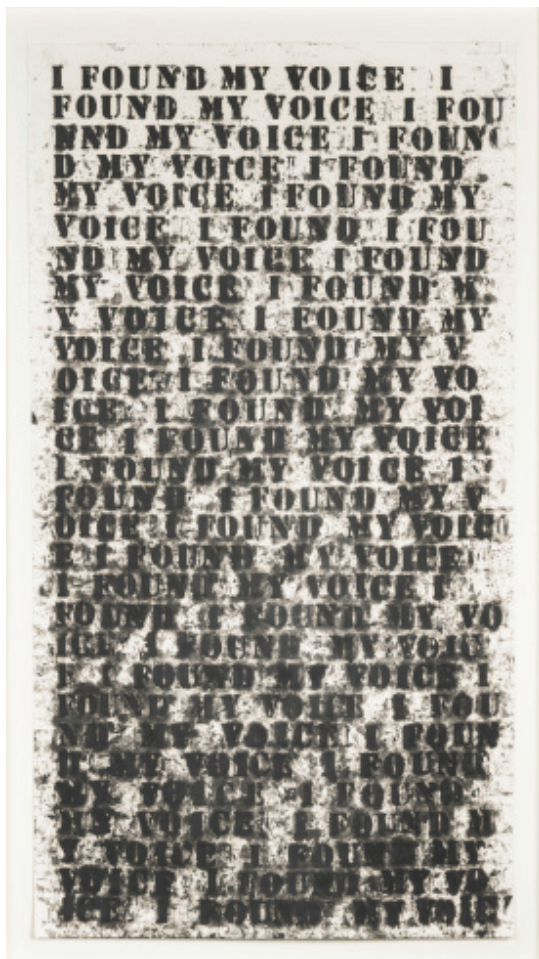 I FOUND MY VOICE I
FOUND MY VOICE I FOU
NND MY VOICE I FOUN
D MY VOICE I FOUND
MY VOICE I FOUND MY
VOICE I FOUND I FOU
ND MY VOICE I FOUND
MY VOICE I FOUND M
Y VOICE I FOUND MY
VOICE I FOUND MY V
OICE I FOUND MY VO
ICE I FOUND MY VOI
CE I FOUND MY VOICE
I FOUND MY VOICE I
FOUND I FOUND MY V
OICE I FOUND MY VOIC
E I FOUND MY VOICE
I FOUND MY VOICE I
FOUND I FOUND MY VO
ICE I FOUND MY VOIC
E I FOUND MY VOICE I
FOUND MY VOICE I FOU
ND MY VOICE I FOUN
D MY VOICE I FOUND
MY VOICE I FOUND
MY VOICE I FOUND M
Y VOICE I FOUND MY
VOICE I FOUND MY VO
ICE I FOUND MY VOIC